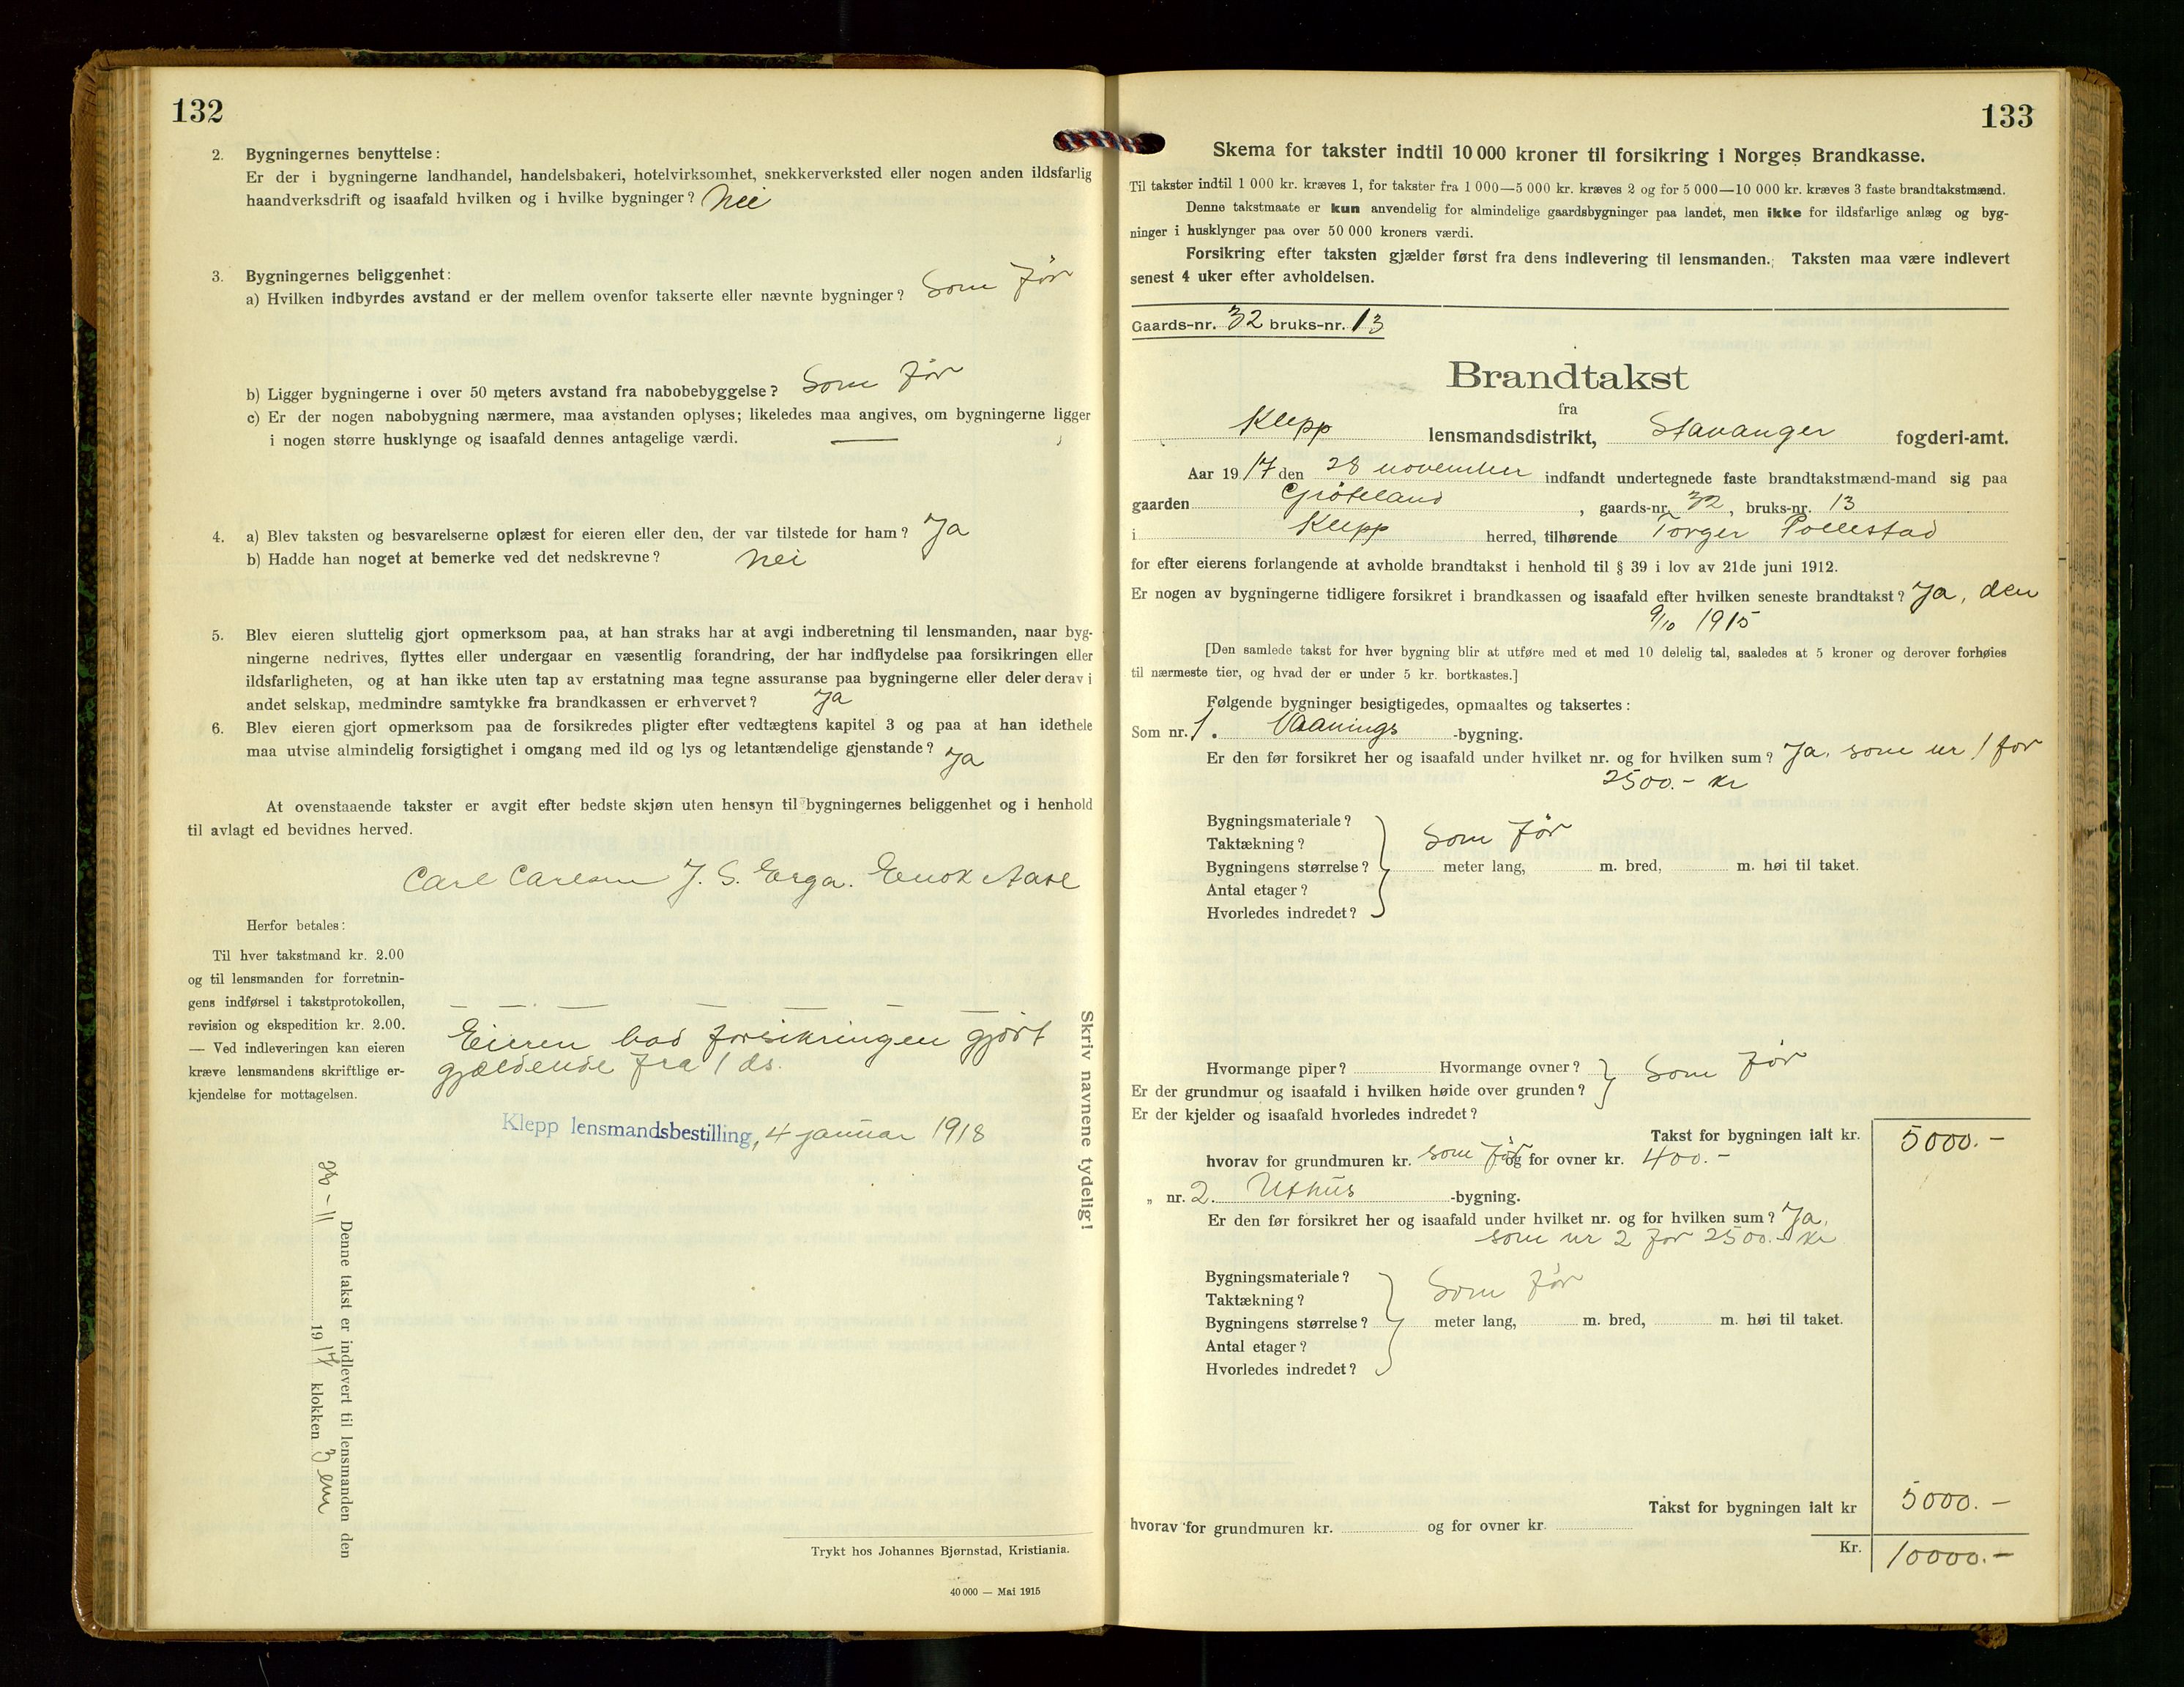 132
2. Bygningernes benyttelse:
Er der i bygningerne landhandel, handelsbakeri, hotelvirksomhet, snekkerverksted eller nogen anden ildsfarlig
haandverksdrift og isaafald hvilken og i hvilke bygninger? Nei
3. Bygningernes beliggenhet:
a) Hvilken indbyrdes avstand er der mellem ovenfor takserte eller nævnte bygninger? Som før
b) Ligger bygningerne i over 50 meters avstand fra nabobebyggelse? Som før
c) Er der nogen nabobygning nærmere, maa avstanden oplyses; likeledes maa angives, om bygningerne ligger
i nogen større husklynge og isaafald dennes antagelige værdi. —
4. a) Blev taksten og besvarelserne oplæst for eieren eller den, der var tilstede for ham? Ja
b) Hadde han noget at bemerke ved det nedskrevne? Nei
5. Blev eieren sluttelig gjort opmerksom paa, at han straks har at avgi indberetning til lensmanden, naar byg-
ningerne nedrives, flyttes eller undergaar en væsentlig forandring, der har indflydelse paa forsikringen eller
ildsfarligheten, og at han ikke uten tap av erstatning maa tegne assuranse paa bygningerne eller deler derav i
andet selskap, medmindre samtykke fra brandkassen er erhvervet? Ja
6. Blev eieren gjort opmerksom paa de forsikredes pligter efter vedtægtens kapitel 3 og paa at han idethele
maa utvise almindelig forsigtighet i omgang med ild og lys og letantændelige gjenstande? Ja
At ovenstaaende takster er avgit efter bedste skjøn uten hensyn til bygningernes beliggenhet og i henhold
til avlagt ed bevidnes herved.
Carl Carlsen J. S. Erga. Enok Aase
Herfor betales:
Til hver takstmand kr. 2.00
og til lensmanden for forretnin-
gens indførsel i takstprotokollen,
revision og ekspedition kr. 2.00.
— Ved indleveringen kan eieren
kræve lensmandens skriftlige er-
kjendelse for mottagelsen.
Eieren bad forsikringen gjort
gjældende fra 1 ds.
Klepp lensmandsbestilling, 4 januar 1918
Skriv navnene tydelig!
Denne takst er indlevert til lensmanden den
28 - 11 1917 klokken 3 em
Trykt hos Johannes Bjørnstad, Kristiania.
40 000 — Mai 1915
133
Skema for takster indtil 10 000 kroner til forsikring i Norges Brandkasse.
Til takster indtil 1 000 kr. kræves 1, for takster fra 1 000—5 000 kr. kræves 2 og for 5 000—10 000 kr. kræves 3 faste brandtakstmænd.
Denne takstmaate er kun anvendelig for almindelige gaardsbygninger paa landet, men ikke for ildsfarlige anlæg og byg-
ninger i husklynger paa over 50 000 kroners værdi.
Forsikring efter taksten gjælder først fra dens indlevering til lensmanden. Taksten maa være indlevert
senest 4 uker efter avholdelsen.
Gaards-nr. 32 bruks-nr. 13
Brandtakst
fra
Klepp lensmandsdistrikt, Stavanger fogderi-amt.
Aar 1917 den 28 november indfandt undertegnede faste brandtakstmænd-mand sig paa
gaarden Grøteland, gaards-nr. 32, bruks-nr. 13
i Klepp herred, tilhørende Torger Pollestad
for efter eierens forlangende at avholde brandtakst i henhold til § 39 i lov av 21de juni 1912.
Er nogen av bygningerne tidligere forsikret i brandkassen og isaafald efter hvilken seneste brandtakst? Ja, den
9/10 1915
[Den samlede takst for hver bygning blir at utføre med et med 10 delelig tal, saaledes at 5 kroner og derover forhøies
til nærmeste tier, og hvad der er under 5 kr. bortkastes.]
Følgende bygninger besigtigedes, opmaaltes og taksertes:
Som nr. 1. Vaanings -bygning.
Er den før forsikret her og isaafald under hvilket nr. og for hvilken sum? Ja, som nr 1 for
2500.- kr
Bygningsmateriale?
Taktækning? Som før
Bygningens størrelse? meter lang, m. bred, m. høi til taket.
Antal etager?
Hvorledes indredet?
Hvormange piper? Hvormange ovner? Som før
Er der grundmur og isaafald i hvilken høide over grunden?
Er der kjelder og isaafald hvorledes indredet?
Takst for bygningen ialt kr. 5000.-
hvorav for grundmuren kr. som før og for ovner kr. 400.-
„ nr. 2. Uthus -bygning.
Er den før forsikret her og isaafald under hvilket nr. og for hvilken sum? Ja,
som nr 2 for 2500.- kr
Bygningsmateriale? Som før
Taktækning?
Bygningens størrelse? meter lang, m. bred, m. høi til taket.
Antal etager?
Hvorledes indredet?
Takst for bygningen ialt kr 5000.-
hvorav for grundmuren kr. og for ovner kr.
Kr. 10000.-